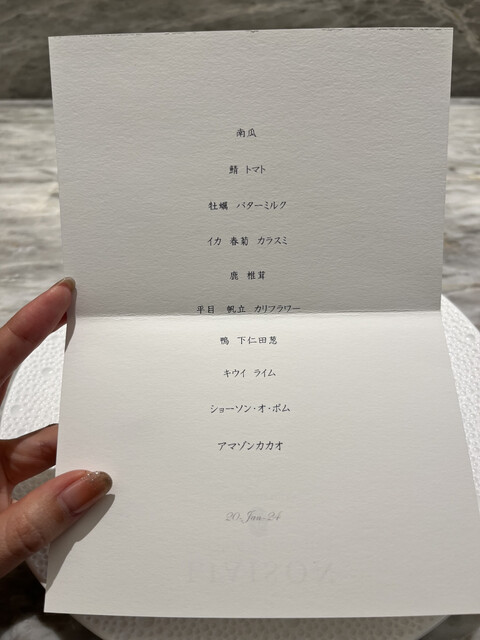 南瓜
鯖 トマト
牡蠣 バターミルク
イカ 春菊 カラスミ
鹿 椎茸
平目 帆立 カリフラワー
鴨 下仁田葱
キウイ ライム
ショーソン・オ・ポム
アマゾンカカオ
20. Jan. 24